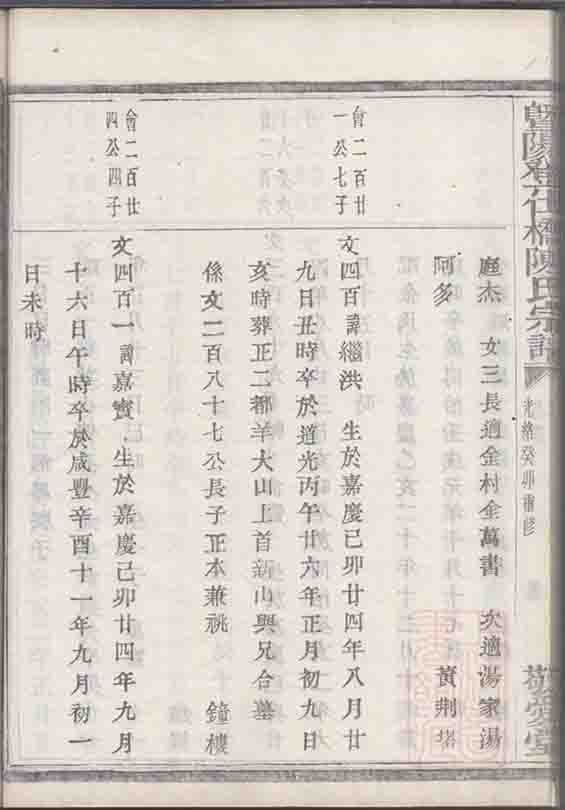 暨陽𡊮仁橋陳氏宗譜
光緒癸卯重修
敬愛堂
庭杰 女三長適金村金萬書 次適湯家湯
阿多 黃荆塔
會二百廿
一公七子
文四百諱繼洪 生於嘉慶己卯廿四年八月廿
九日丑時卒於道光丙午廿六年正月初九日
亥時葬正二都羊大山上首新山與兄合墓
係文二百八十七公長子正本兼祧 鐘樓
會二百廿
四公四子
文四百一諱嘉賓 生於嘉慶己卯廿四年九月
十六日午時卒於咸豐辛酉十一年九月初一
日未時